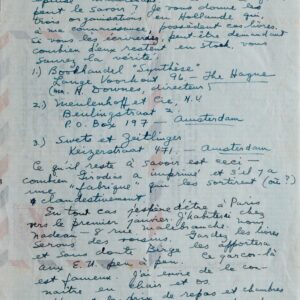 peut le savoir? Je vous donne les
trois organisations en Hollande qui,
à ma connaissance, possèdent ces livres.
si vous les écriviez, peut être demandant
combien d'eux restent en stock, vous
saurez la vérité!
1.) Boekhandel "Synthèse"
Lange Voorhout 96 - The Hague
(Mr. N. Downes, directeur)
2.) Meulenhoff et Cie, N.V.
Beulingstraat 2
P.O. Box 197 Amsterdam
3.) Swets et Zeitlinger
Keizersgracht 471. Amsterdam
Ce qu'il reste à savoir est ceci -
combien Girodias a imprimé et s'il y a
une "fabrique" qui les sortirent (où?)
clandestinement
En tout cas j'espère d'être à Paris
vers le premier janvier. J'habiterai chez
Nadeau - 8 rue Malebranche. Nous
serons des voisins. les livres
et sous de Dr. apportera
aux E.U. peu à peu. Ce garçon-là
est fameux. J'ai envie de le con-
naître en chair et os.
de repas et chambre